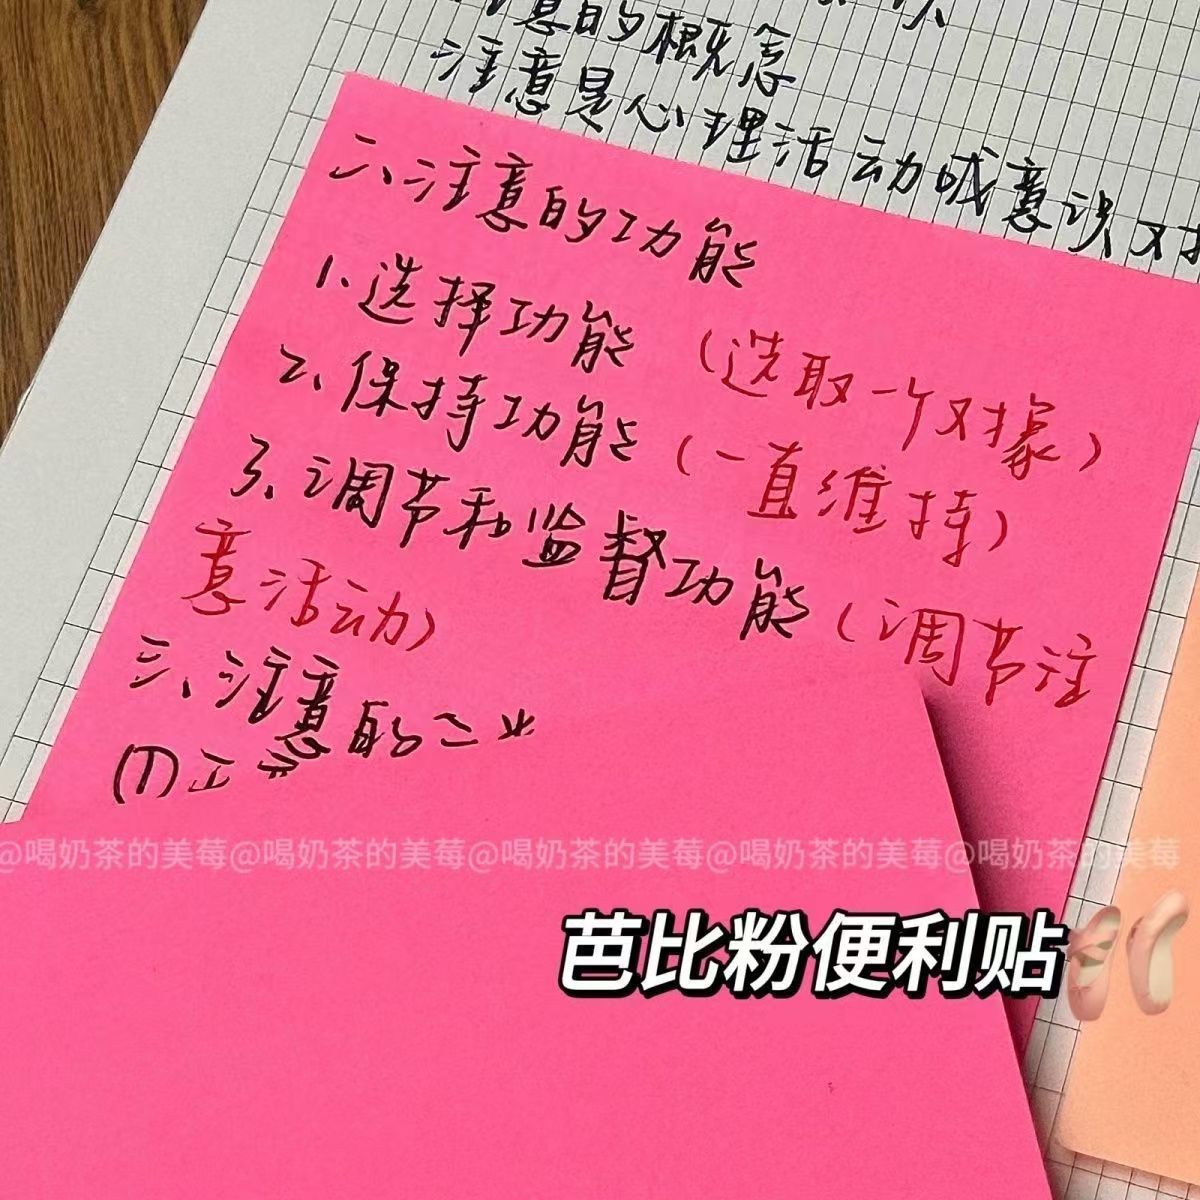 意的概念
注意是心理活动或意识对
二、注意的功能
1.选择功能（选取一个对象）
2、保持功能（一直维持）
3、调节和监督功能（调节注
意活动）
三、注意的
@喝奶茶的美莓@喝奶茶的美莓@喝奶茶的美莓@喝奶茶的美莓@喝奶茶的美莓
芭比粉便利贴